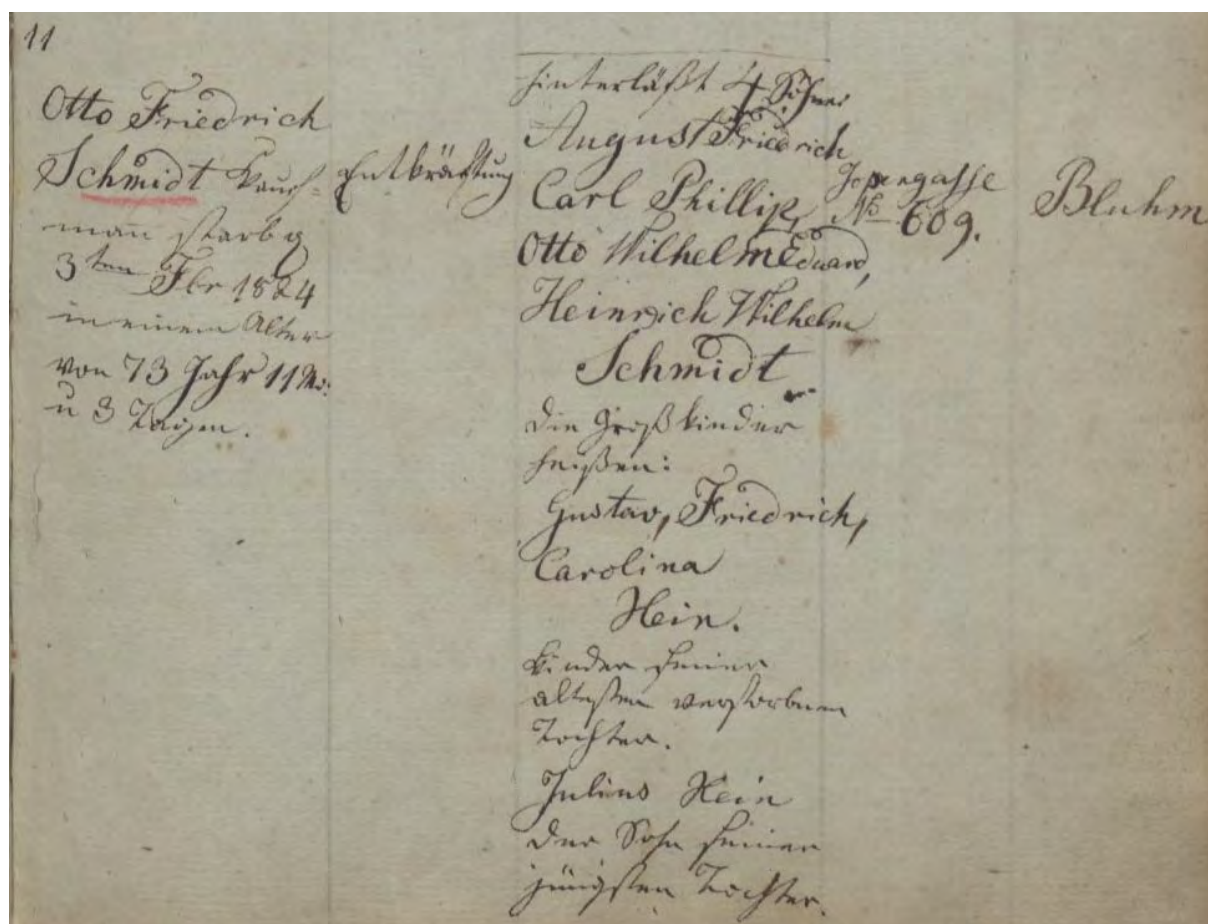 11
Otto Friedrich
Schmidt Kauf-
mann starb d
3ten Fbr 1824
in einem Alter
von 73 Jahr 11 Mo:
u 3 Tagen.
Entkräftung
hinterläßt 4 Söhne
August Friedrich
Carl Phillip,
Otto Wilhelm Eduard,
Heinrich Wilhelm
Schmidt
die Großkinder
heißen:
Gustav, Friedrich,
Carolina
Hein.
Kinder seiner
ältesten verstorbnen
Tochter.
Julius Hein
der Sohn seiner
jüngsten Tochter.
Jopengasse
No 609.
Bluhm